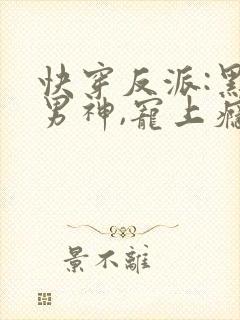 快穿反派:黑
男神,寵上癮
景不離